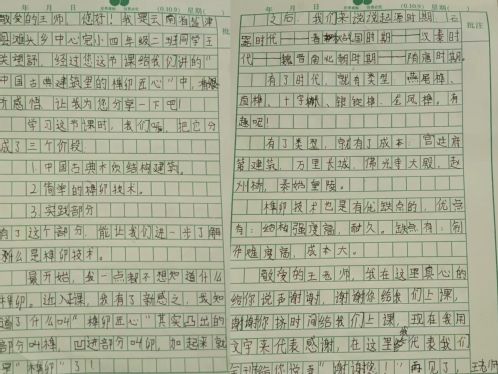 年 月 日 星期( )
敬爱的王师，您好！我是云南省盐津
县滩头乡中心完小四年级二班同学王
经过您这节课给我们讲的"
中国古典建筑里的榫卯匠心"中，
所感悟，让我为您分享一下吧！
学习这节课时，我们 把它分
成了三个阶段
1.中国古典木质结构建筑。
2.简单的榫卯技术。
3.实践部分
有了这个部分，能让我们进一步了解
什么是榫卯技术。
最开始，我一点都不想知道什么
榫卯。近入课，我有了新感之，我知
道了什么叫"榫卯匠心"其实凸出的
部分叫榫，凹进部分叫卯，加起来就
叫"榫卯"了！
年 月 日 (0:10:9) 星期( )
批注
之后，我们来说说起源时期，石
器时代——春秋战国时期——汉秦时
代——魏晋南北朝时期——隋唐时期。
有了时代，就有类型：燕尾榫、
直榫、十字榫、银锭榫、龙凤榫。有
趣呢！
有了类型，就有了成本：宫廷府
第建筑、万里长城，佛光寺大殿，赵
州桥，秦始皇陵。
榫卯技术也是有优缺点的，优点
有：结构强度高，耐久。缺点有：制
作难度高，成本大。
敬爱的王老师，我在这里真心的
给你说声谢谢，谢谢你给我们上课，
谢谢你挤时间给我们上课，现在我用
文字来代表感谢，在这里我代表我们
给你说声"谢谢您！"再见了，王老师